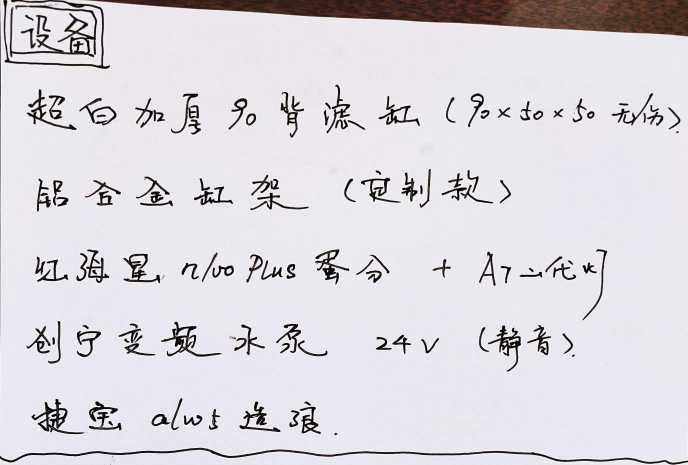 设备
超白加厚90背滤缸(90×50×50无伤)
铝合金缸架(定制款)
红海星 n100 Plus 蛋分 + A7二代灯
创宁变频水泵 24V (静音)
捷宝 alw5 造浪.